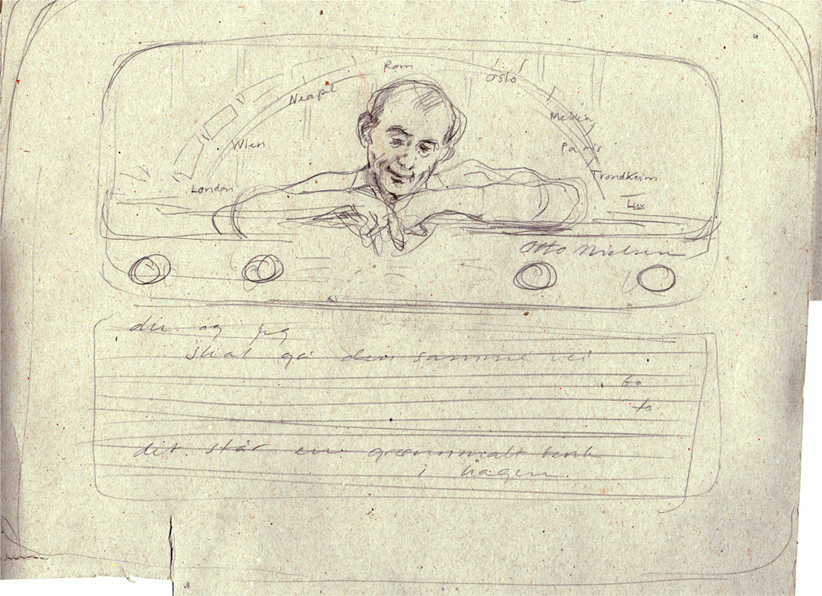 Rom
Neapel
Oslo
Wien
Paris
London
Trondheim
Lux
Otto Nielsen
du og jeg
skal gå den samme vei
to
to
det står en grønnmalt benk
i hagen